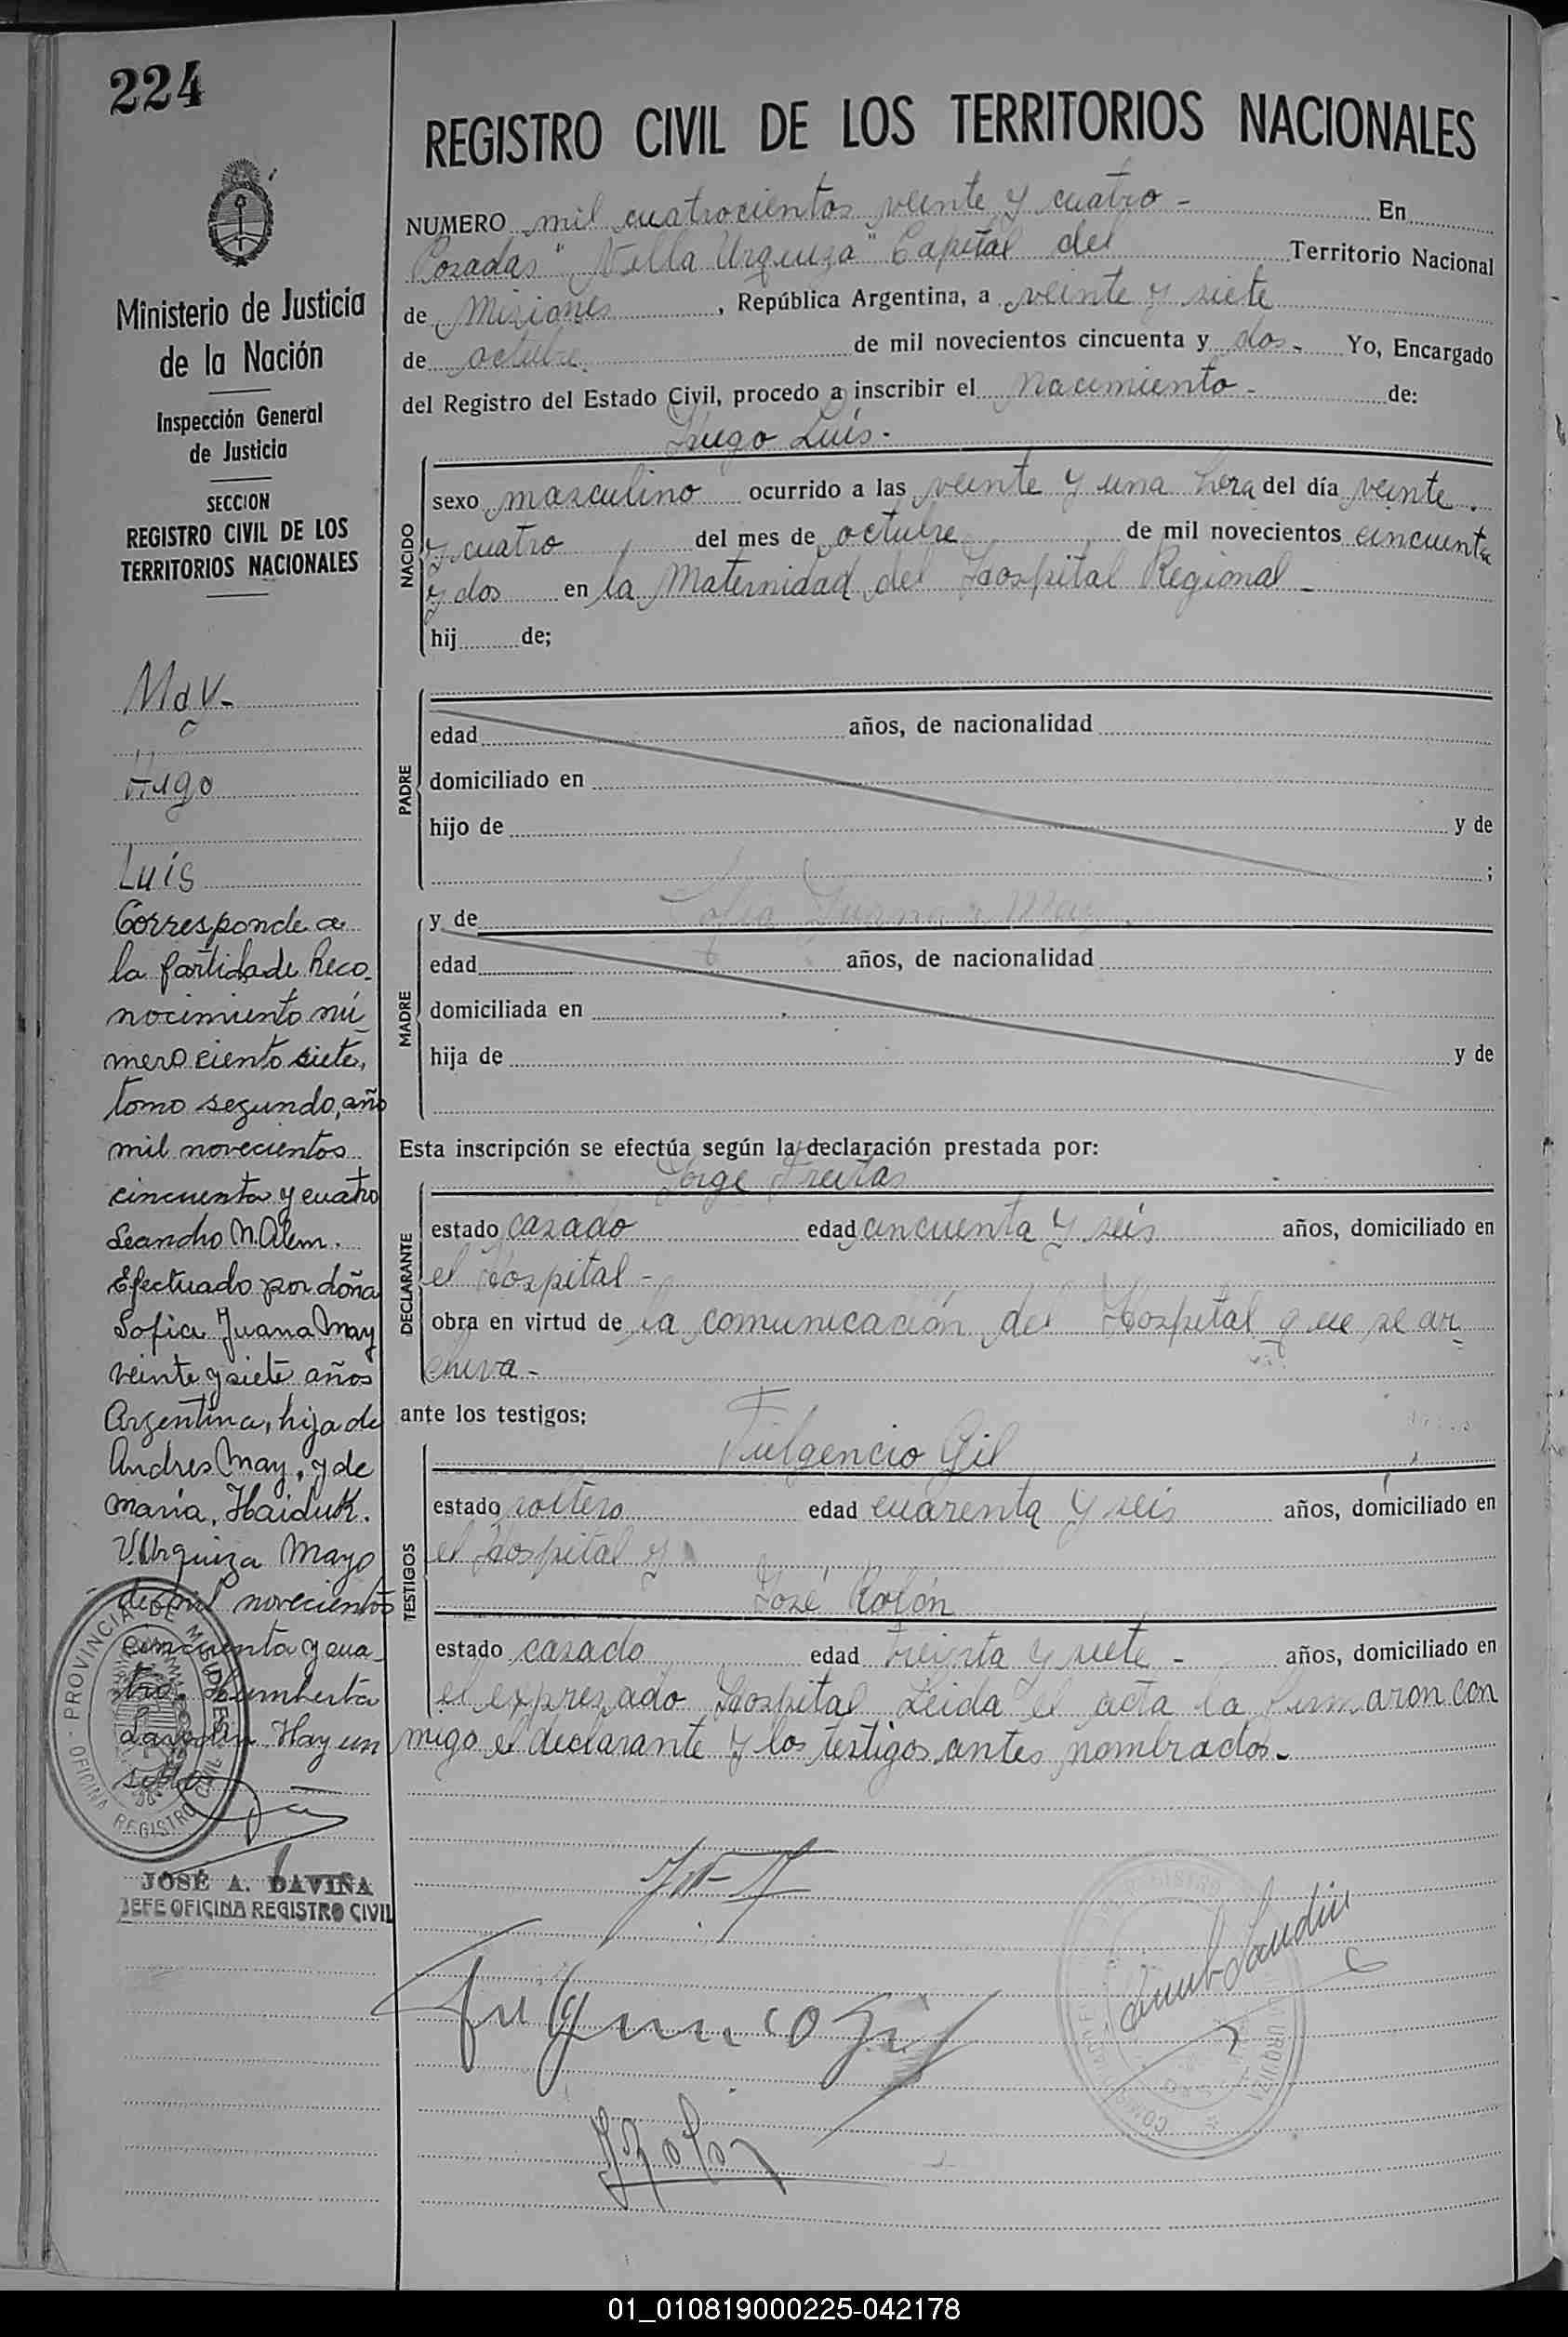 224
Ministerio de Justicia
de la Nación
Inspección General
de Justicia
SECCION
REGISTRO CIVIL DE LOS
TERRITORIOS NACIONALES
May-
Hugo
Luís
Corresponde a
la partida de Reco-
nocimiento nú-
mero ciento siete,
tomo segundo, año
mil novecientos
cincuenta y cuatro
Leandro N. Alem.
Efectuado por doña
Sofia Juana May
veinte y siete años
Argentina, hija de
Andres May, y de
Maria, Haiduk.
V. Urquiza Mayo
de mil novecientos
cincuenta y cua-
tro. Humberto
Hay un
sello
PROVINCIA DE MISIONES
OFICINA REGISTRO CIVIL
JOSÉ A. DAVIÑA
JEFE OFICINA REGISTRO CIVIL
REGISTRO CIVIL DE LOS TERRITORIOS NACIONALES
NUMERO mil cuatrocientos veinte y cuatro - En
Posadas "Villa Urquiza" Capital del Territorio Nacional
de Misiones, República Argentina, a veinte y siete
de octubre de mil novecientos cincuenta y dos- Yo, Encargado
del Registro del Estado Civil, procedo a inscribir el Nacimiento- de:
Hugo Luís-
NACIDO
sexo masculino ocurrido a las veinte y una hora del día veinte
y cuatro del mes de octubre de mil novecientos cincuenta
y dos en la Maternidad del Hospital Regional-
hij de;
PADRE
edad años, de nacionalidad
domiciliado en
hijo de y de
;
MADRE
y de Sofia Juana May.
edad años, de nacionalidad
domiciliada en
hija de y de
Esta inscripción se efectúa según la declaración prestada por:
Jorge Freitas
DECLARANTE
estado casado edad cincuenta y seis años, domiciliado en
el Hospital-
obra en virtud de la comunicación del Hospital que se ar-
chiva-
ante los testigos:
Fulgencio Gil
TESTIGOS
estado soltero edad cuarenta y seis años, domiciliado en
el Hospital y
José Rolón
estado casado edad treinta y siete- años, domiciliado en
el expresado Hospital Leida el acta la firmaron con
migo el declarante y los testigos antes nombrados-
Fulgencio Gil
01_010819000225-042178